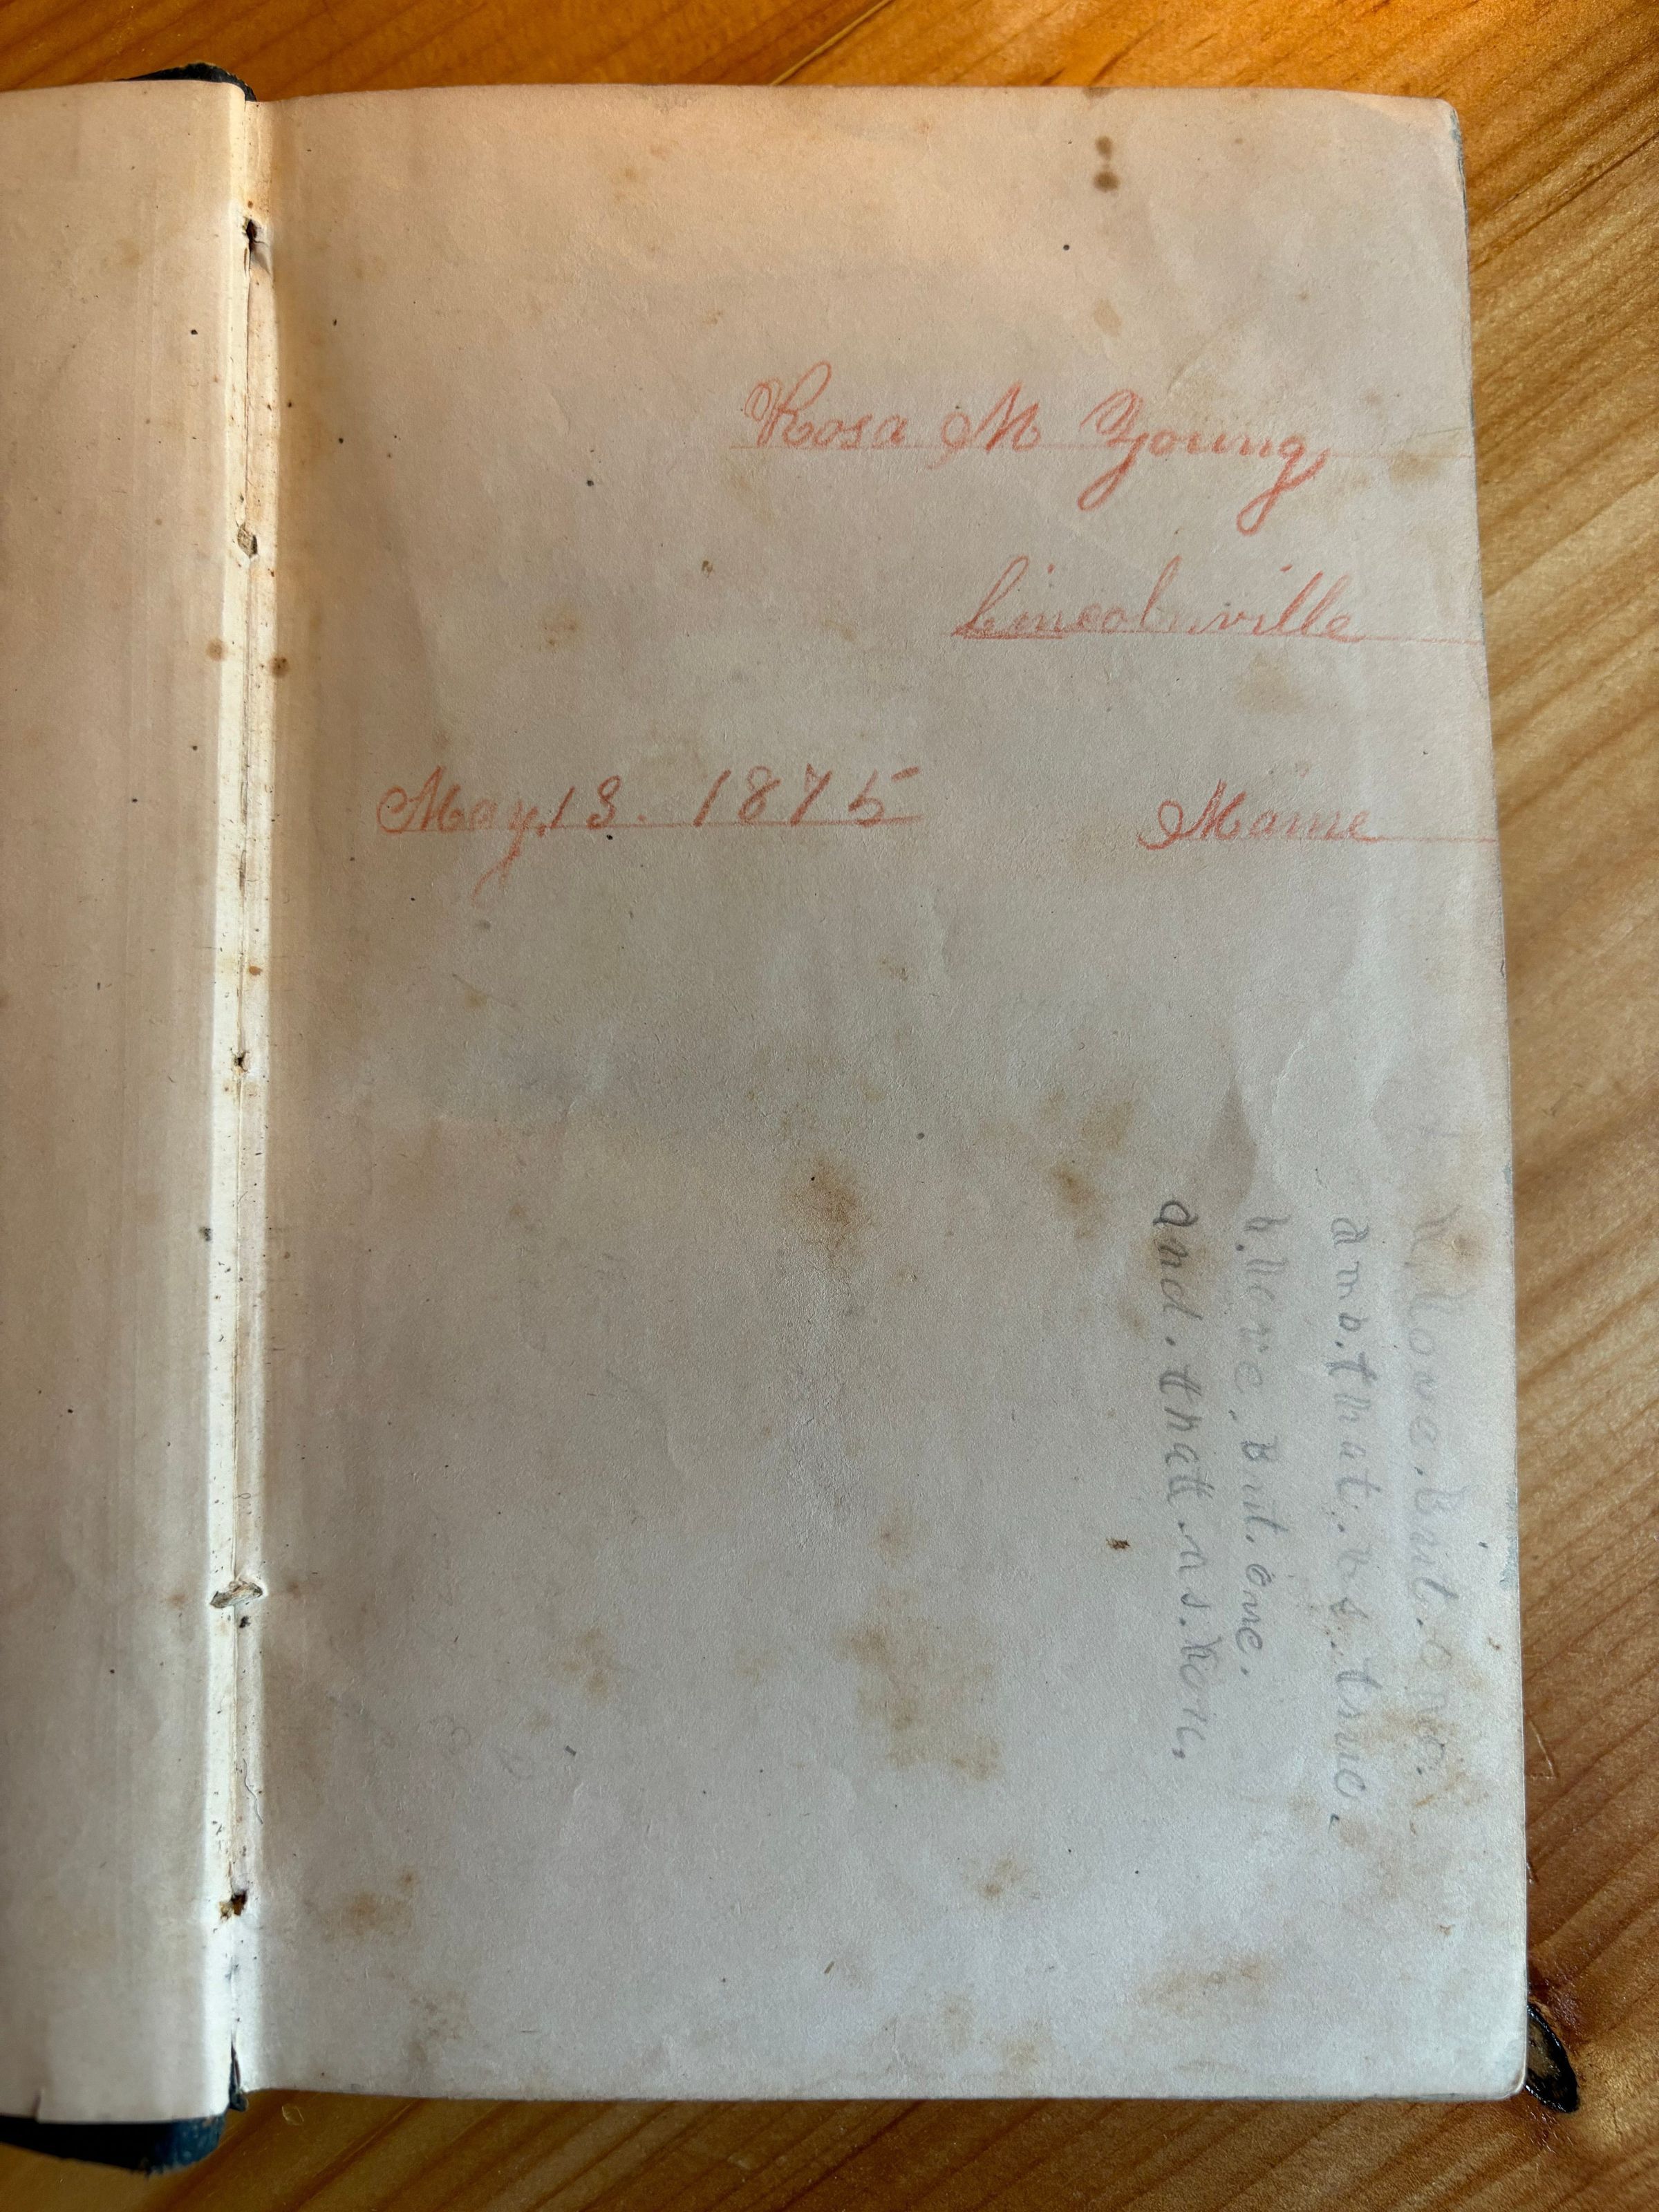 Rosa M Young
Lincolnville
May, 13. 1875 Maine
love. But. one.
and. that. is. true.
love. But. one.
and. that. is.